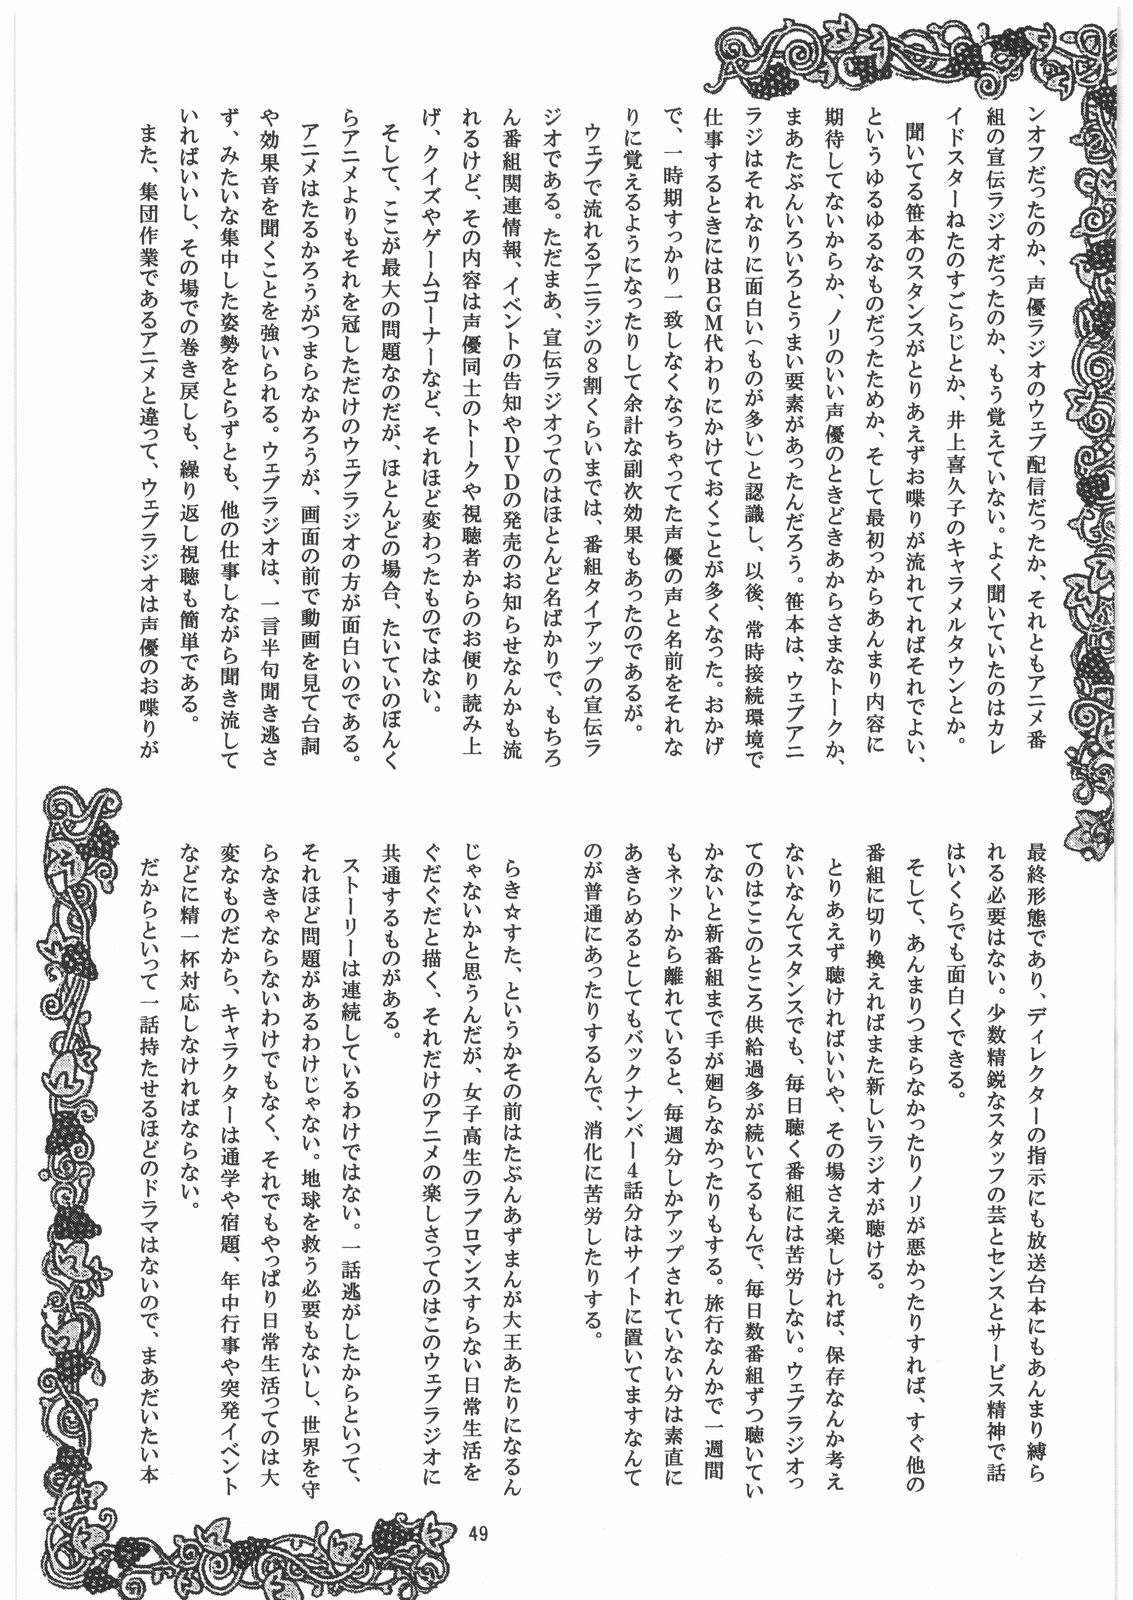 ンオフだったのか、声優ラジオのウェブ配信だったか、それともアニメ番
組の宣伝ラジオだったのか、もう覚えていない。よく聞いていたのはカレ
イドスターねたのすごらじとか、井上喜久子のキャラメルタウンとか。
聞いてる笹本のスタンスがとりあえずお喋りが流れてればそれでよい、
というゆるゆるなものだったためか、そして最初っからあんまり内容に
期待してないからか、ノリのいい声優のときどきあからさまなトークか、
まあたぶんいろいろとうまい要素があったんだろう。笹本は、ウェブアニ
ラジはそれなりに面白い（ものが多い）と認識し、以後、常時接続環境で
仕事するときにはＢＧＭ代わりにかけておくことが多くなった。おかげ
で、一時期すっかり一致しなくなっちゃってた声優の声と名前をそれな
りに覚えるようになったりして余計な副次効果もあったのであるが。
ウェブで流れるアニラジの８割くらいまでは、番組タイアップの宣伝ラ
ジオである。ただまあ、宣伝ラジオってのはほとんど名ばかりで、もちろ
ん番組関連情報、イベントの告知やＤＶＤの発売のお知らせなんかも流
れるけど、その内容は声優同士のトークや視聴者からのお便り読み上
げ、クイズやゲームコーナーなど、それほど変わったものではない。
そして、ここが最大の問題なのだが、ほとんどの場合、たいていのぼんく
らアニメよりもそれを冠しただけのウェブラジオの方が面白いのである。
アニメはたるかろうがつまらなかろうが、画面の前で動画を見て台詞
や効果音を聞くことを強いられる。ウェブラジオは、一言半句聞き逃さ
ず、みたいな集中した姿勢をとらずとも、他の仕事しながら聞き流して
いればいいし、その場での巻き戻しも、繰り返し視聴も簡単である。
また、集団作業であるアニメと違って、ウェブラジオは声優のお喋りが
最終形態であり、ディレクターの指示にも放送台本にもあんまり縛ら
れる必要はない。少数精鋭なスタッフの芸とセンスとサービス精神で話
はいくらでも面白くできる。
そして、あんまりつまらなかったりノリが悪かったりすれば、すぐ他の
番組に切り換えればまた新しいラジオが聴ける。
とりあえず聴ければいいや、その場さえ楽しければ、保存なんか考え
ないなんてスタンスでも、毎日聴く番組には苦労しない。ウェブラジオっ
てのはここのところ供給過多が続いてるもんで、毎日数番組ずつ聴いてい
かないと新番組まで手が廻らなかったりもする。旅行なんかで一週間
もネットから離れていると、毎週分しかアップされていない分は素直に
あきらめるとしてもバックナンバー４話分はサイトに置いてますなんて
のが普通にあったりするんで、消化に苦労したりする。
らき☆すた、というかその前はたぶんあずまんが大王あたりになるん
じゃないかと思うんだが、女子高生のラブロマンスすらない日常生活を
ぐだぐだと描く、それだけのアニメの楽しさってのはこのウェブラジオに
共通するものがある。
ストーリーは連続しているわけではない。一話逃がしたからといって、
それほど問題があるわけじゃない。地球を救う必要もないし、世界を守
らなきゃならないわけでもなく、それでもやっぱり日常生活ってのは大
変なものだから、キャラクターは通学や宿題、年中行事や突発イベント
などに精一杯対応しなければならない。
だからといって一話持たせるほどのドラマはないので、まあだいたい本
49